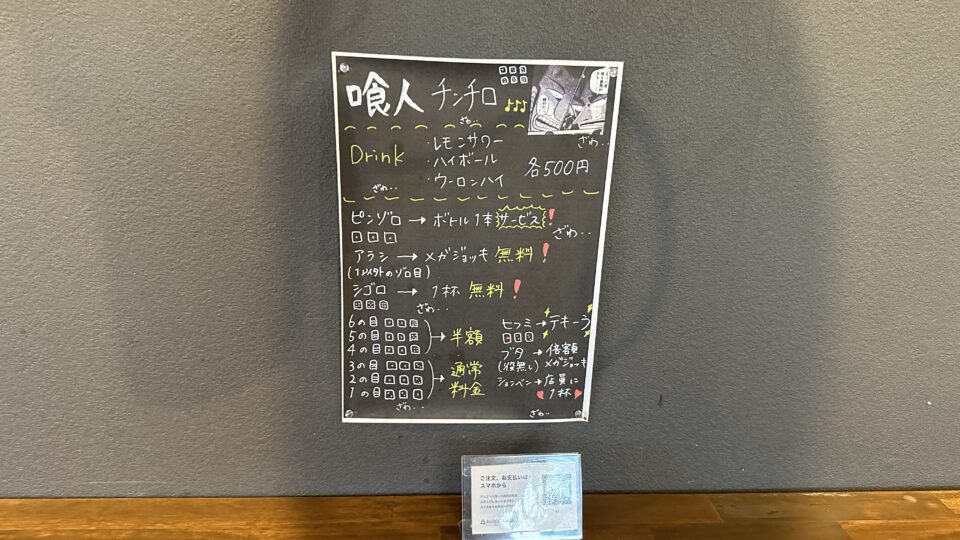 喰人 チンチロ
ざわ‥
Drink
・レモンサワー
・ハイボール
・ウーロンハイ
各500円
ざわ‥
ざわ‥
ピンゾロ → ボトル1本 サービス!
ざわ‥
アラシ → メガジョッキ 無料!
(1以外のゾロ目)
シゴロ → 1杯 無料!
ざわ‥
6の目
5の目
4の目
→ 半額
3の目
2の目
1の目
→ 通常
料金
ざわ‥
ヒフミ → テキーラ
ブタ → 倍額
(役無し) メガジョッキ
ションベン → 店員に
1杯
ざわ‥
ご注文、お支払いは
スマホから